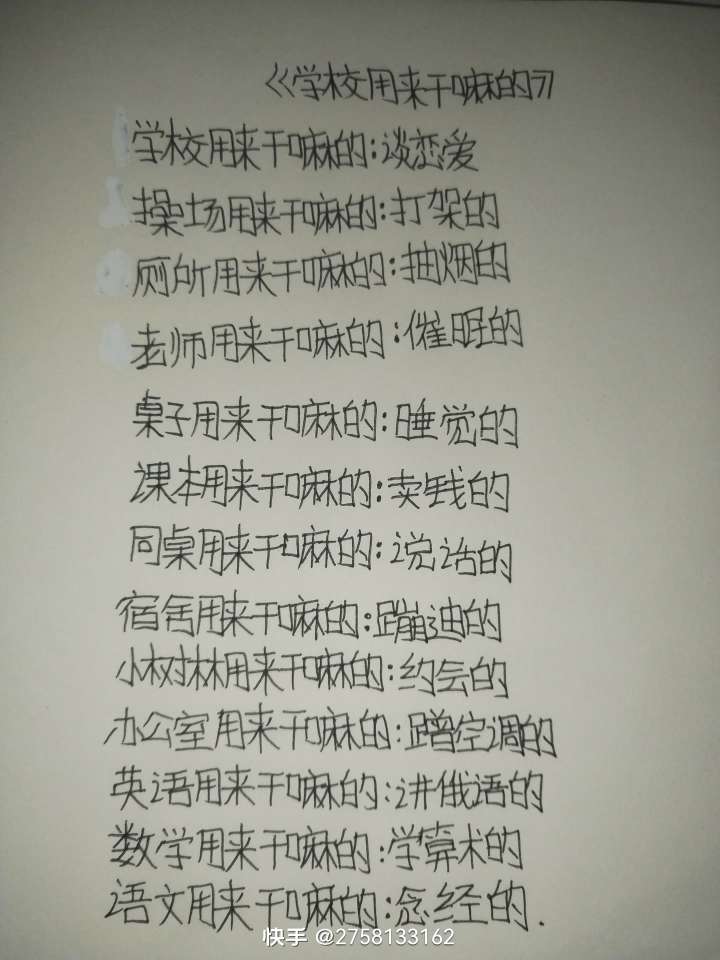 《学校用来干嘛的》
学校用来干嘛的:谈恋爱
操场用来干嘛的:打架的
厕所用来干嘛的:抽烟的
老师用来干嘛的:催眠的
桌子用来干嘛的:睡觉的
课本用来干嘛的:卖钱的
同桌用来干嘛的:说话的
宿舍用来干嘛的:蹦迪的
小树林用来干嘛的:约会的
办公室用来干嘛的:蹭空调的
英语用来干嘛的:讲俄语的
数学用来干嘛的:学算术的
语文用来干嘛的:念经的.
快手 @2758133162